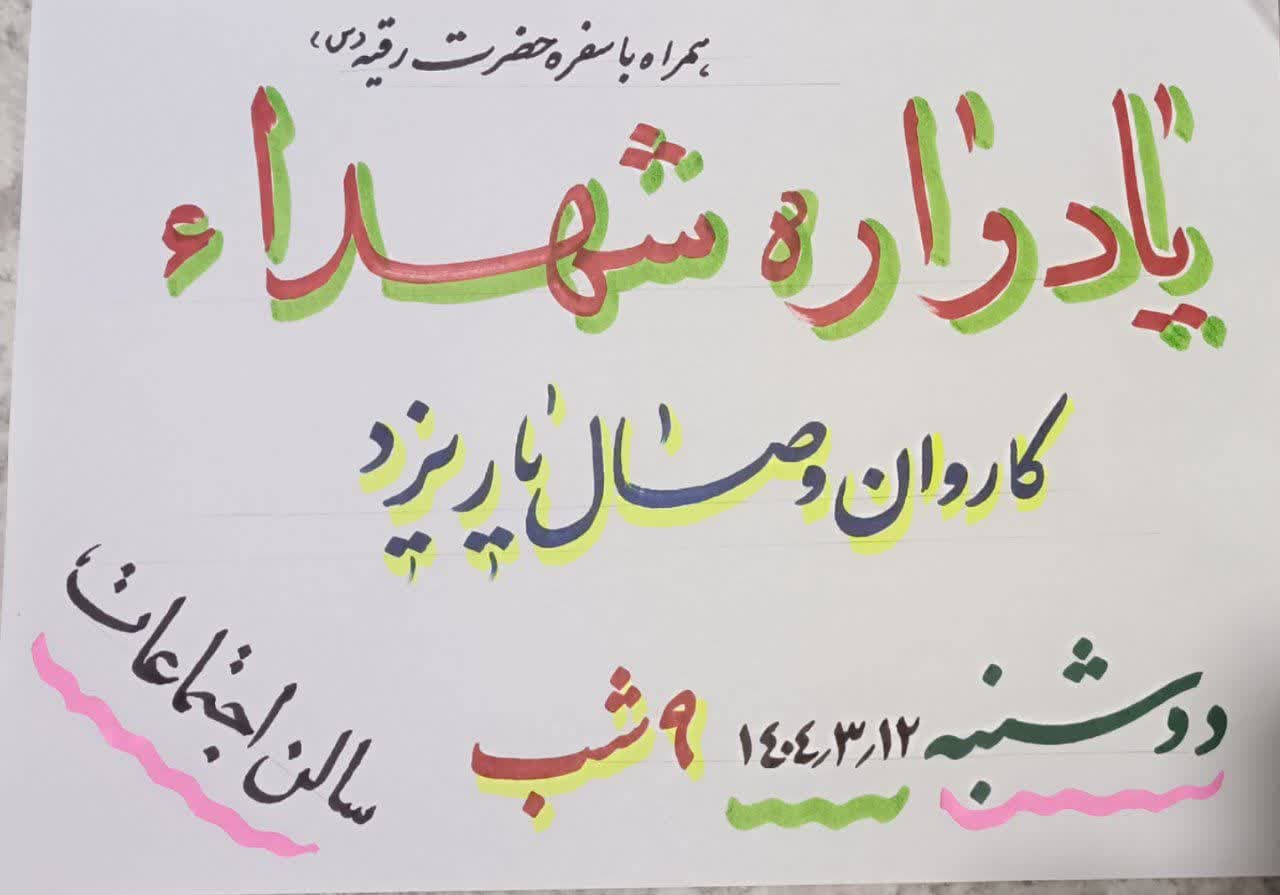 همراه با سفره حضرت رقیه (س)
یادواره شهداء
کاروان وصال یار یزد
دوشنبه ۱۴۰۴/۳/۱۲ ۹ شب
سالن اجتماعات